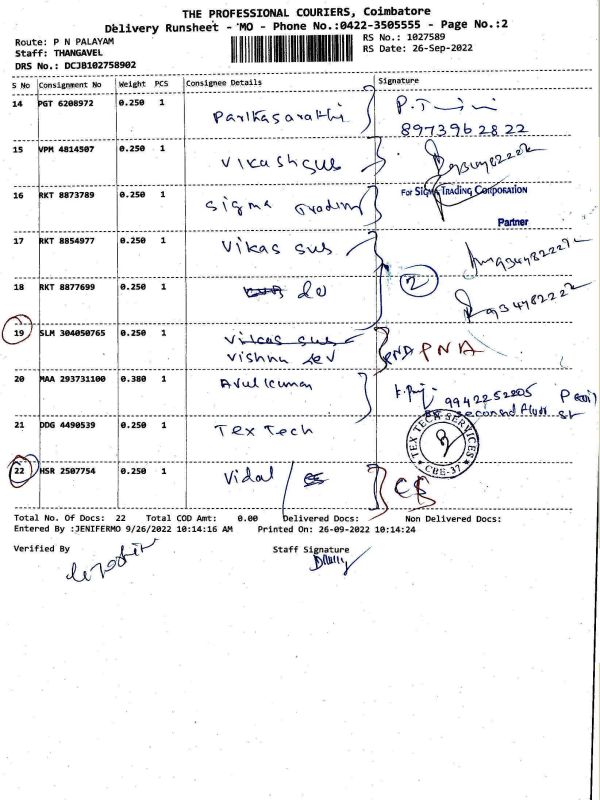 THE PROFESSIONAL COURIERS, Coimbatore
Delivery Runsheet - MO - Phone No.:0422-3505555 - Page No.:2
Route: P N PALAYAM
Staff: THANGAVEL
DRS No.: DCJB102758902
RS No.: 1027589
RS Date: 26-Sep-2022
S No Consignment No Weight PCS Consignee Details Signature
14 PGT 6208972 0.250 1 Parthasarathi
8973962822
15 VPM 4814507 0.250 1 Vikash sus
16 RKT 8873789 0.250 1 Sigma Trading
For Sigma Trading Corporation
Partner
17 RKT 8854977 0.250 1 Vikas sus 9344782222
18 RKT 8877699 0.250 1 do 2 9344782222
19 SLM 304050765 0.250 1 Vikas sus PNA
Vishnu
20 MAA 293731100 0.380 1 Arul kumar 9942252205
21 DDG 4490539 0.250 1 Tex Tech
TEX TECH SERVICES
CBE-37
22 HSR 2507754 0.250 1 Vidal CS
Total No. Of Docs: 22 Total COD Amt: 0.00 Delivered Docs: Non Delivered Docs:
Entered By :JENIFERMO 9/26/2022 10:14:16 AM Printed On: 26-09-2022 10:14:24
Verified By Staff Signature